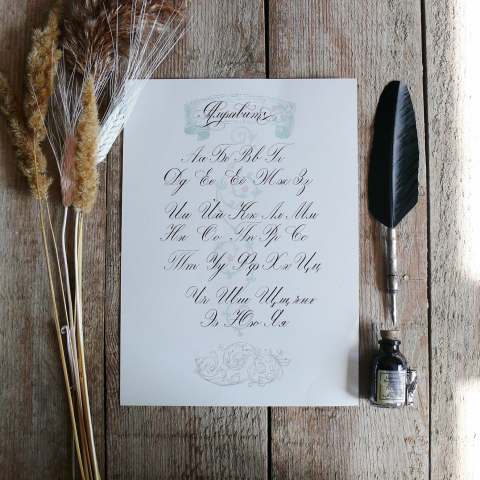 Алфавитъ
Аа Бб Вв Гг
Дд Ее Ее Жж Зз
Ии Йй Кк Лл Мм
Нн Оо Пп Рр Сс
Тт Уу Фф Хх Цц
Чч Шш Щщ ъыь
Ээ Юю Яя